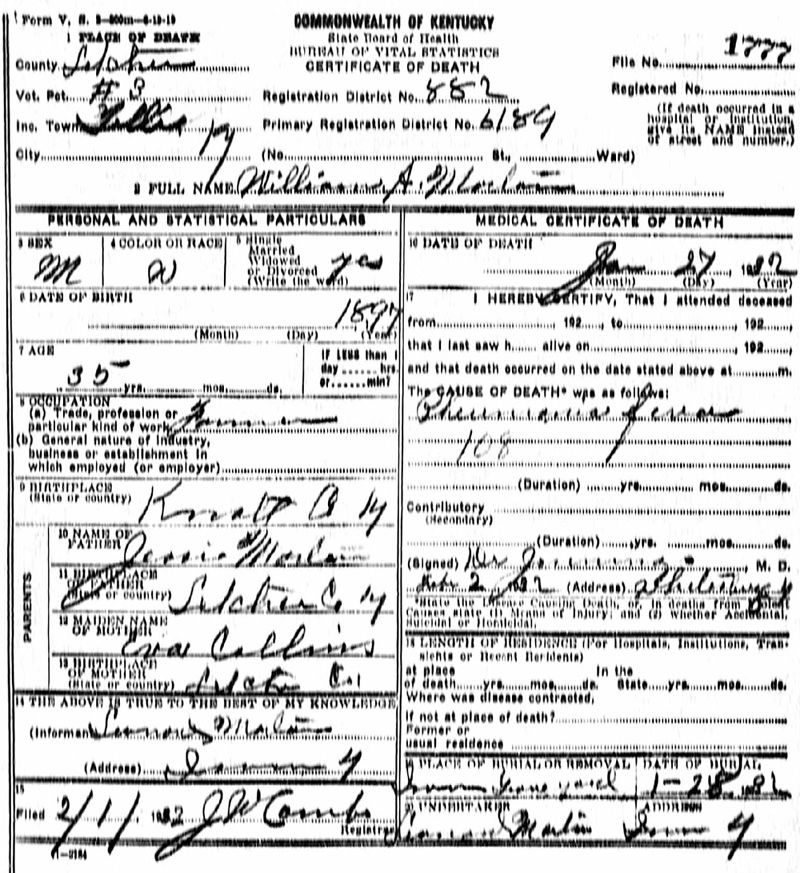 Form V. S. 3-500m-6-13-19
COMMONWEALTH OF KENTUCKY
State Board of Health
BUREAU OF VITAL STATISTICS
CERTIFICATE OF DEATH
1 PLACE OF DEATH
County Letcher
Vot. Pct. # 3
Inc. Town
City
Registration District No. 882
Primary Registration District No. 6189
(No. St., Ward)
File No. 1777
Registered No.
(If death occurred in a
hospital or institution,
give its NAME instead
of street and number.)
2 FULL NAME William A. Martin
PERSONAL AND STATISTICAL PARTICULARS
3 SEX
M
4 COLOR OR RACE
W
5 Single
Married
Widowed
or Divorced
(Write the word)
yes
6 DATE OF BIRTH
1897
(Month) (Day) (Year)
7 AGE
35 yrs. mos. ds.
IF LESS than 1
day hrs.
or min?
8 OCCUPATION
(a) Trade, profession or
particular kind of work Farmer
(b) General nature of industry,
business or establishment in
which employed (or employer)
9 BIRTHPLACE
(State or country) Knott Co Ky
PARENTS
10 NAME OF
FATHER Martin
11 BIRTHPLACE
OF FATHER
(State or country) Letcher Co Ky
12 MAIDEN NAME
OF MOTHER Eva Collins
13 BIRTHPLACE
OF MOTHER
(State or country) Letcher Co
14 THE ABOVE IS TRUE TO THE BEST OF MY KNOWLEDGE
(Informant Martin
(Address)
15
Filed 2/1/ 1932 J W Combs
Registrar
11-3184
MEDICAL CERTIFICATE OF DEATH
16 DATE OF DEATH
Jan 27 1932
(Month) (Day) (Year)
17 I HEREBY CERTIFY, That I attended deceased
from , 192 , to , 192 ,
that I last saw h alive on , 192 ,
and that death occurred on the date stated above at m.
The CAUSE OF DEATH* was as follows:
Pneumonia fever
108
(Duration) yrs. mos. ds.
Contributory
(Secondary)
(Duration) yrs. mos. ds.
(Signed) Dr , M. D.
Feb 2 1932 (Address)
*State the Disease Causing Death, or, in deaths from Violent
Causes state (1) Means of Injury; and (2) whether Accidental,
Suicidal or Homicidal.
18 LENGTH OF RESIDENCE (For Hospitals, Institutions, Transients
or Recent Residents)
at place In the
of death yrs. mos. ds. State yrs. mos. ds.
Where was disease contracted,
If not at place of death?
Former or
usual residence
19 PLACE OF BURIAL OR REMOVAL
DATE OF BURIAL
1-28 1932
20 UNDERTAKER
Martin
ADDRESS